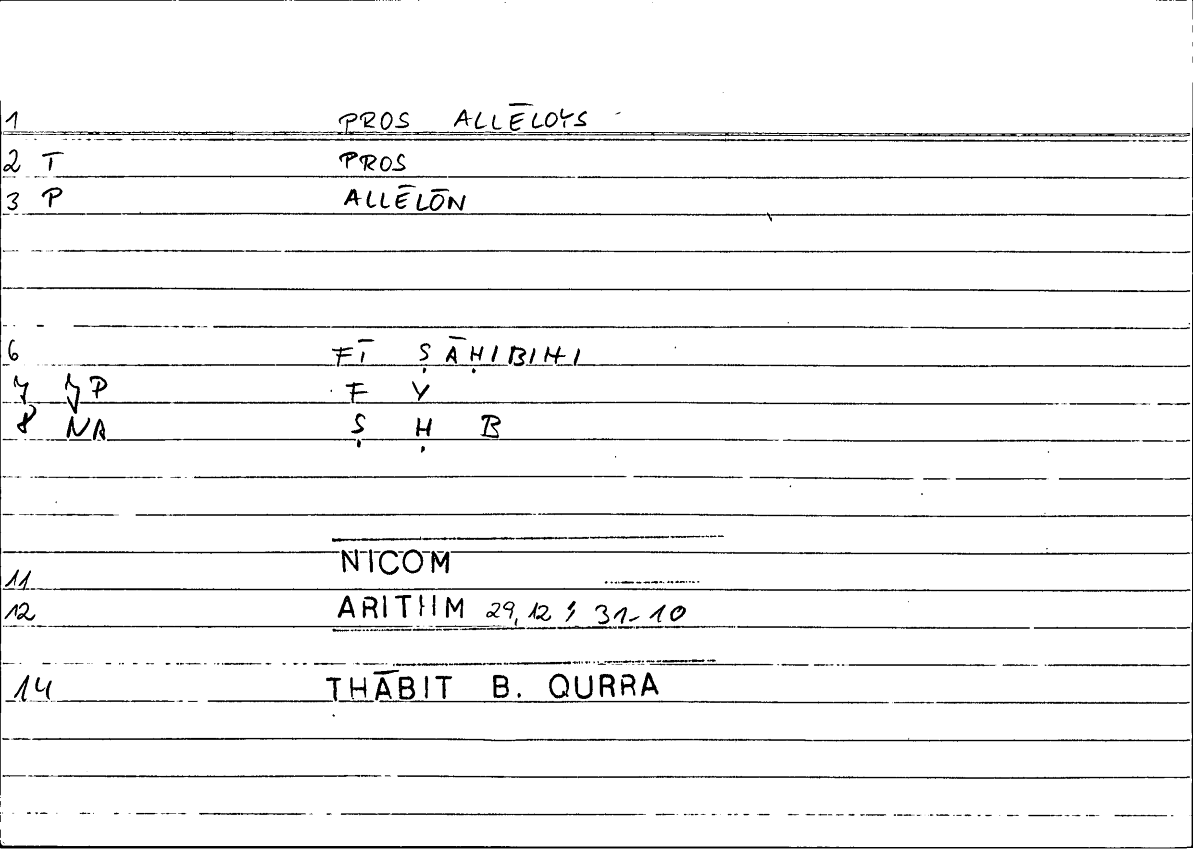 1 PROS ALLĒLOYS
2 T PROS
3 P ALLĒLŌN
6 FĪ ṢĀḤIBIHI
7 P F Y
8 NA Ṣ Ḥ B
NICOM
11
12 ARITHM 29,12 31-10
14 THĀBIT B. QURRA